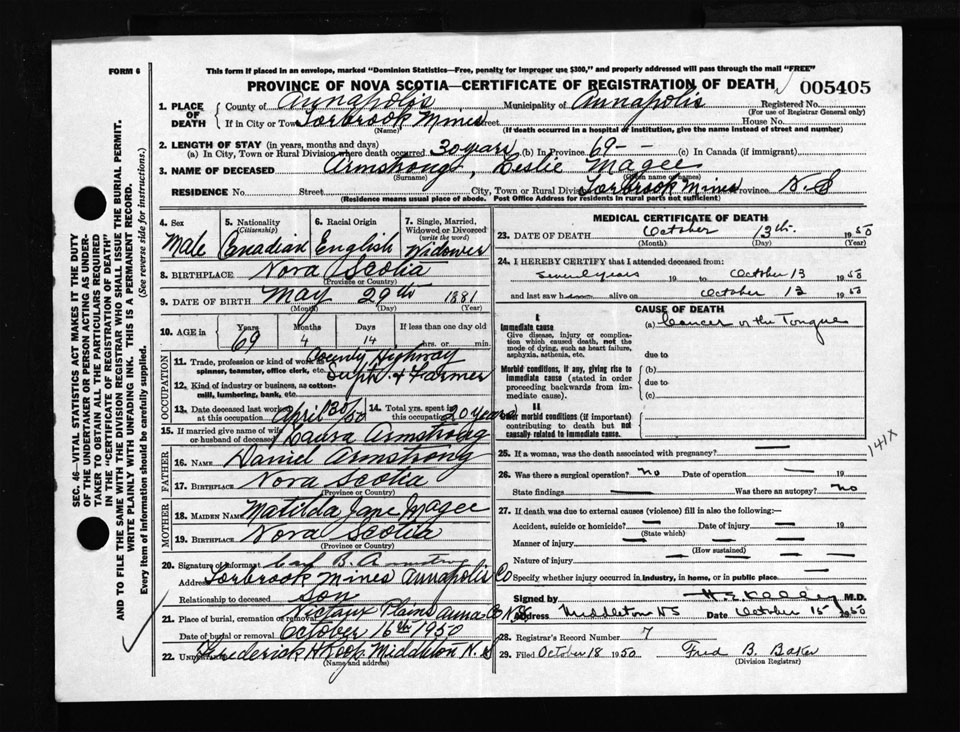 FORM 6
This form if placed in an envelope, marked "Dominion Statistics—Free, penalty for improper use $300," and properly addressed will pass through the mail "FREE"
PROVINCE OF NOVA SCOTIA—CERTIFICATE OF REGISTRATION OF DEATH 005405
1. PLACE OF DEATH County of Annapolis Municipality of Annapolis Registered No.
(For use of Registrar General only)
If in City or Town Torbrook Mines Street House No.
(Name) (If death occurred in a hospital or institution, give the name instead of street and number)
2. LENGTH OF STAY (in years, months and days)
(a) In City, Town or Rural Division where death occurred 30 years (b) In Province 69 - - (c) In Canada (if immigrant)
3. NAME OF DECEASED Armstrong, Leslie Magee
(Surname) (Given name or names)
RESIDENCE No. Street City, Town or Rural Division Torbrook Mines Province N.S
(Residence means usual place of abode. Post Office Address for residents in rural parts not sufficient)
4. Sex Male
5. Nationality (Citizenship) Canadian
6. Racial Origin English
7. Single, Married, Widowed or Divorced (write the word) Widower
8. BIRTHPLACE Nova Scotia
(Province or Country)
9. DATE OF BIRTH May 29th 1881
(Month) (Day) (Year)
10. AGE in Years 69 Months 4 Days 14 If less than one day old hrs. or min.
OCCUPATION
11. Trade, profession or kind of work as spinner, teamster, office clerk, etc. County Highway
Supt. & Farmer
12. Kind of industry or business, as cotton-mill, lumbering, bank, etc.
13. Date deceased last worked at this occupation April 30/50
14. Total yrs. spent in this occupation 20 years
15. If married give name of wife or husband of deceased Laura Armstrong
FATHER
16. NAME Daniel Armstrong
17. BIRTHPLACE Nova Scotia
(Province or Country)
MOTHER
18. MAIDEN NAME Matilda Jane Magee
19. BIRTHPLACE Nova Scotia
(Province or Country)
20. Signature of informant B. Armstrong
Address Torbrook Mines Annapolis Co
Relationship to deceased Son
21. Place of burial, cremation or removal Nictaux Plains Anna Co N.S.
Date of burial or removal October 16th 1950
22. Undertaker Frederick H Roop Middleton N.S
(Name and address)
MEDICAL CERTIFICATE OF DEATH
23. DATE OF DEATH October 13th 1950
(Month) (Day) (Year)
24. I HEREBY CERTIFY that I attended deceased from:
several years 19 to October 13 1950
and last saw him alive on October 13 1950
CAUSE OF DEATH
I
Immediate cause
Give disease, injury or complication which caused death, not the mode of dying, such as heart failure, asphyxia, asthenia, etc.
(a) Cancer of the Tongue
due to
Morbid conditions, if any, giving rise to immediate cause (stated in order proceeding backwards from immediate cause).
(b)
due to
(c)
II
Other morbid conditions (if important) contributing to death but not causally related to immediate cause.
25. If a woman, was the death associated with pregnancy? —
141X
26. Was there a surgical operation? no Date of operation — 19
State findings — Was there an autopsy? no
27. If death was due to external causes (violence) fill in also the following:—
Accident, suicide or homicide? — Date of injury — 19
(State which)
Manner of injury —
(How sustained)
Nature of injury — — — —
Specify whether injury occurred in industry, in home, or in public place —
Signed by H. E. Kelley M.D.
Address Middleton NS Date October 15 1950
28. Registrar's Record Number 7
29. Filed October 18 1950 Fred B. Baker
(Division Registrar)
SEC. 46—VITAL STATISTICS ACT MAKES IT THE DUTY
OF THE UNDERTAKER OR PERSON ACTING AS UNDER-
TAKER TO OBTAIN ALL THE PARTICULARS REQUIRED
IN THE "CERTIFICATE OF REGISTRATION OF DEATH"
AND TO FILE THE SAME WITH THE DIVISION REGISTRAR WHO SHALL ISSUE THE BURIAL PERMIT.
WRITE PLAINLY WITH UNFADING INK. THIS IS A PERMANENT RECORD.
Every item of information should be carefully supplied. (See reverse side for instructions.)